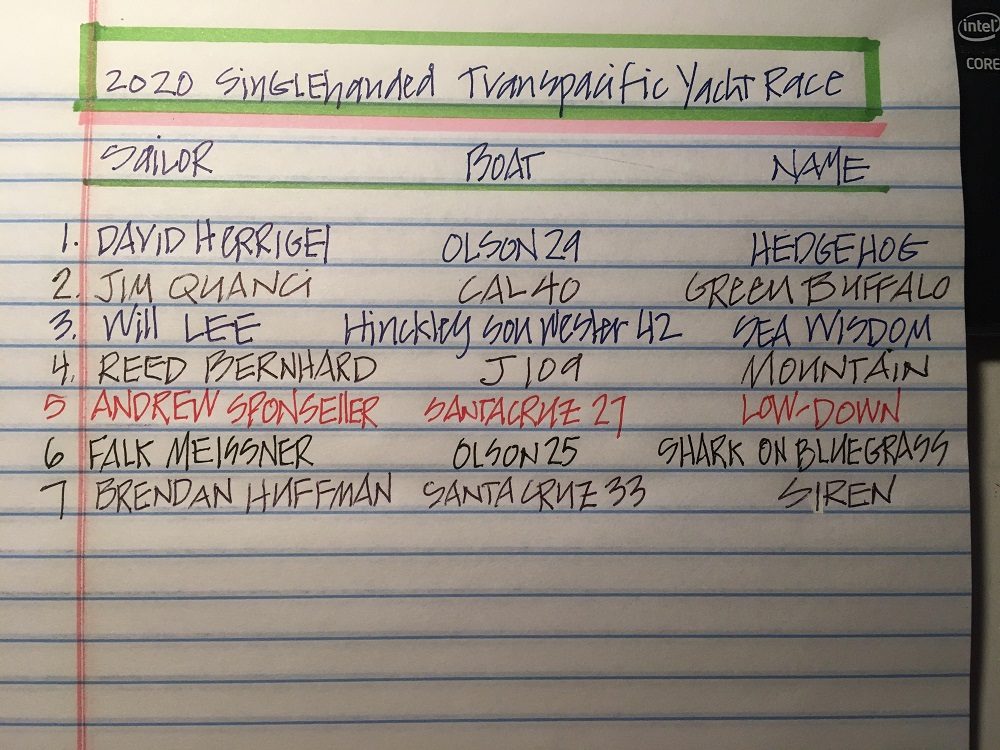 2020 SinGLEhanded Transpacific Yacht Race
SAILOR BOAT NAME
1. DAVID HERRIGEl OLSON 29 HEDGEHOG
2. JIM QUANCi CAL 40 GREEN BUFFALO
3. Will LEE Hinckley Sou Wester 42 SEA WISDOM
4. REED BERNHARD J 109 MOUNTAIN
5 ANDREW SPONSEllER SANTA CRUZ 27 LOW-DOWN
6 FALK MEISSNER OLSON 25 SHARK ON BLUEGRASS
7 BRENDAN HUFFMAN SANTA CRUZ 33 SIREN
intel
CORE